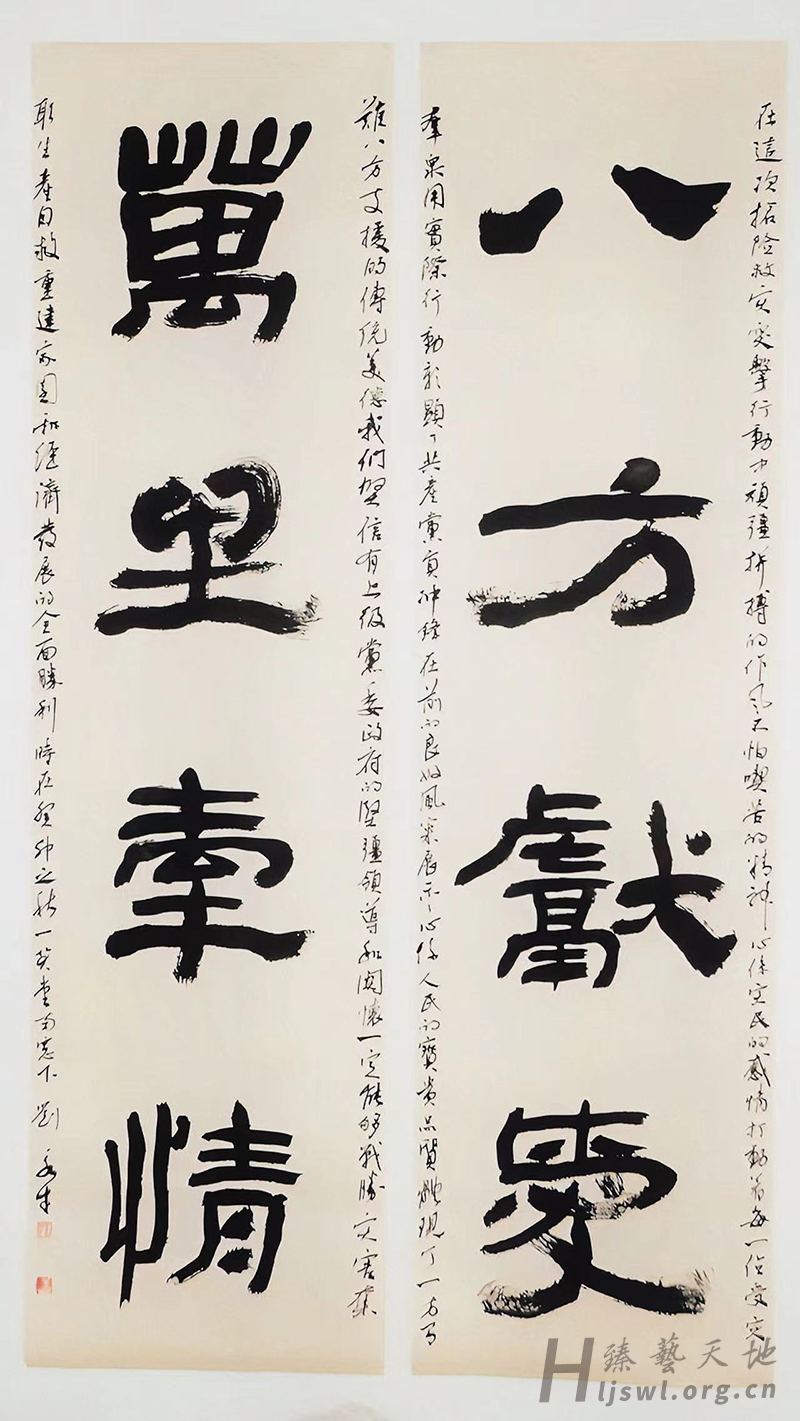 八方獻愛
在這次抢險救灾突擊行動中頑彊拼搏的作風不怕喫苦的精神心係灾民的感情打動着每一位受灾
羣衆用實際行動彰顯了共產黨員冲鋒在前的良好風案展示了心係人民的寶貴品質體現了一方有
難八方支援的傳統美德我們堅信有上級黨委政府的堅彊領導和関懷一定能够戰勝灾害奪
萬里牽情
取生產自救重建家園和經濟發展的全面勝利時在癸卯之秋一笑堂南窓下劉
臻藝天地
Hljswl.org.cn